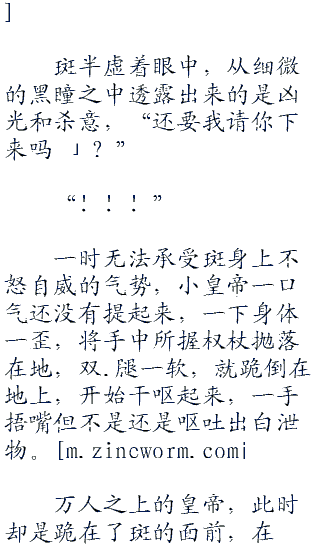 ]
斑半虚着眼中，从细微
的黑瞳之中透露出来的是凶
光和杀意，“还要我请你下
来吗 」？”
“！！！”
一时无法承受斑身上不
怒自威的气势，小皇帝一口
气还没有提起来，一下身体
一歪，将手中所握权杖抛落
在地，双.腿一软，就跪倒在
地上，开始干呕起来，一手
捂嘴但不是还是呕吐出白泄
物。[m.zincworm.com|
万人之上的皇帝，此时
却是跪在了斑的面前，在